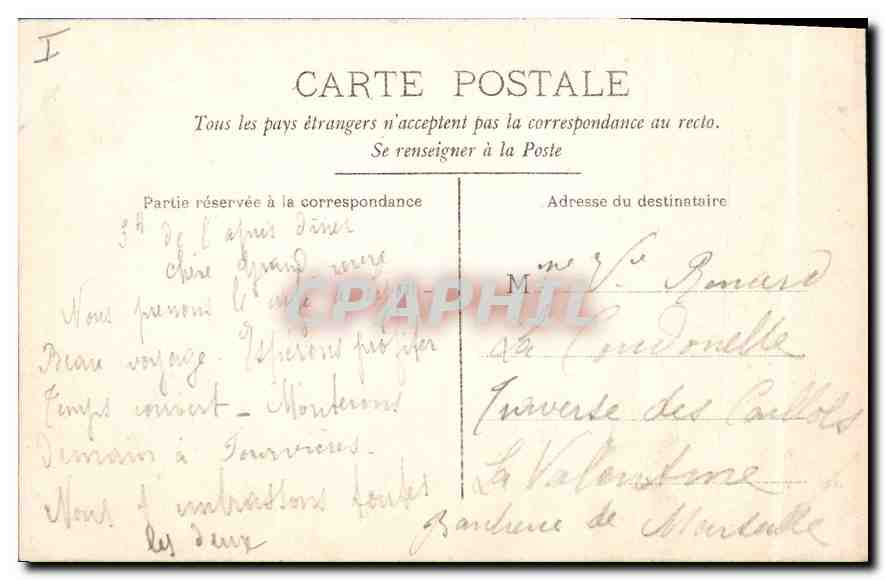 I
CARTE POSTALE
Tous les pays étrangers n'acceptent pas la correspondance au recto.
Se renseigner à la Poste
Partie réservée à la correspondance
3h de l'après diner
chère Grand mère
Nous prenons le
Beau voyage. Espérons profiter
Temps couvert - Monterons
demain à Fourvières.
Nous t'embrassons toutes
les deux
Adresse du destinataire
Mme Ve Renard
La Condonelle
Traverse des Caillols
La Valentine
Banlieue de Marseille
CPAPHIL.com